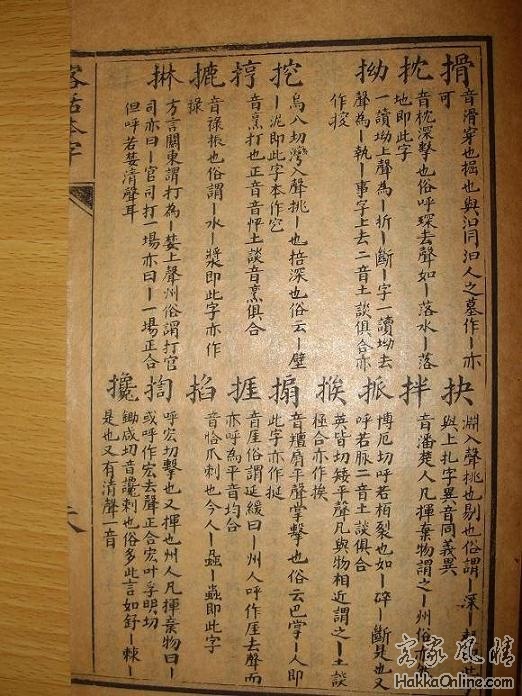 搰
音滑穿也掘也與汩同汩人之墓作丨亦
可
抌
音枕深擊也俗呼琛去聲如丨落水丨落
地即此字
拗
一讀坳上聲為丨折丨斷丨字一讀坳去
聲為丨執丨事字上去二音土談俱合亦
作挍
挖
烏八切灣入聲挑丨也掊深也俗云丨壁
丨泥即此字本作穵
揨
音烹打也正音音怦土談音烹俱合
摝
音祿振也俗謂丨水丨漿即此字亦作
㨷
方言關東謂打為丨婪上聲州俗謂打官
司亦曰丨官司打一場亦曰丨一場正合
但呼若婪清聲耳
抉
淵入聲挑也剔也俗謂丨深丨
與上扎字異音同義異
拌
音潘楚人凡揮棄物謂之丨州俗亦
𢫦
博厄切呼若栢裂也如丨碎丨斷是也又
呼若脈二音土談俱合
挨
英皆切矮平聲凡與物相近謂之丨土談
極合亦作挨
搧
音羶扇平聲掌擊也俗云巴掌丨人即
此字亦作挻
捱
音崖俗謂延緩曰丨州人呼作厓去聲而
亦呼為平音均合
掐
音恰爪刺也今人丨蝨丨蟲即此字
揈
呼宏切擊也又揮也州人凡揮棄物曰丨
或呼作宏去聲正合宏叶孚明切
攙
鋤咸切音讒刺也俗多此言如舒丨棘丨
是也又有清聲一音
客話本字
客家風情
HakkaOnline.com